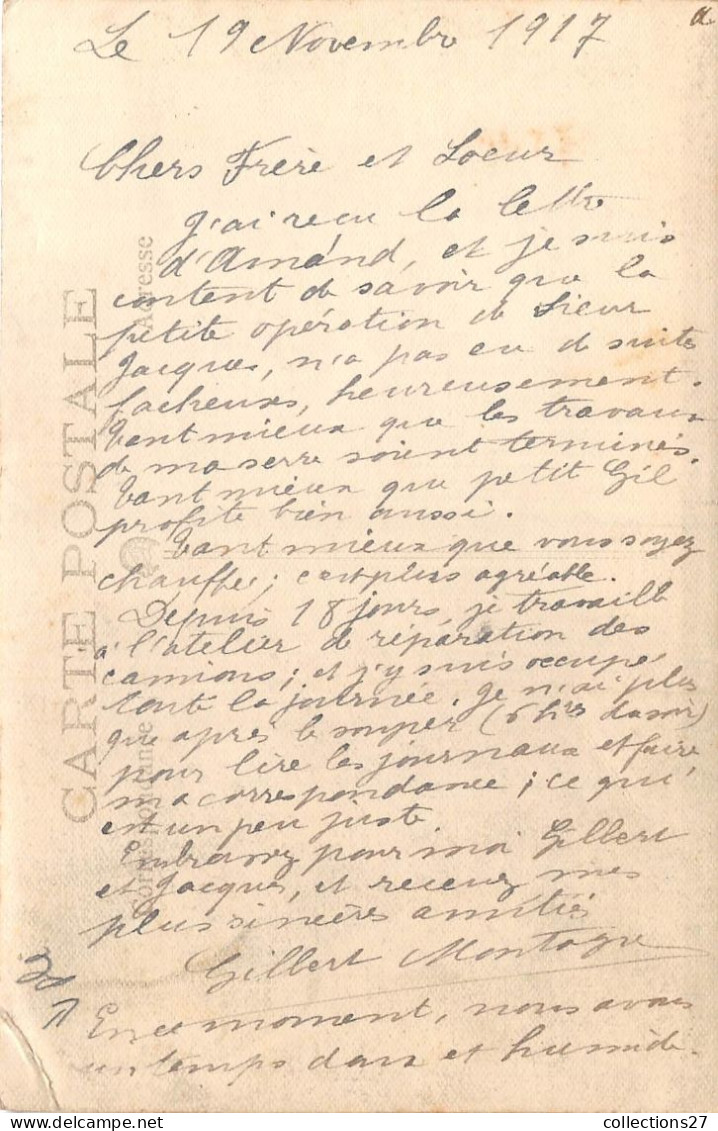 Le 19 Novembre 1917
Chers Frère et Soeur
J'ai reçu la lettre
d'Amand, et je suis
content de savoir que la
petite opération de Sieur
Jacques, n'a pas eu de suites
facheuses, heureusement.
Tant mieux que les travaux
de ma serre soient terminés.
Tant mieux que petit Gil
profite bien aussi.
Tant mieux que vous soyez
chauffé; c'est plus agréable.
Depuis 18 jours, je travaille
à l'atelier de réparation des
camions; et j'y suis occupé
toute la journée. Je n'ai plus
que après le souper (6 hres du soir)
pour lire les journaux et faire
ma correspondance; ce qui
en un peu juste
Embrassez pour moi Gilbert
et Jacques, et recevez mes
plus sincères amitiés
Gilbert Montagu
En ce moment, nous avons
un temps doux et humide.
CARTE POSTALE
Correspondance
Adresse
collections27